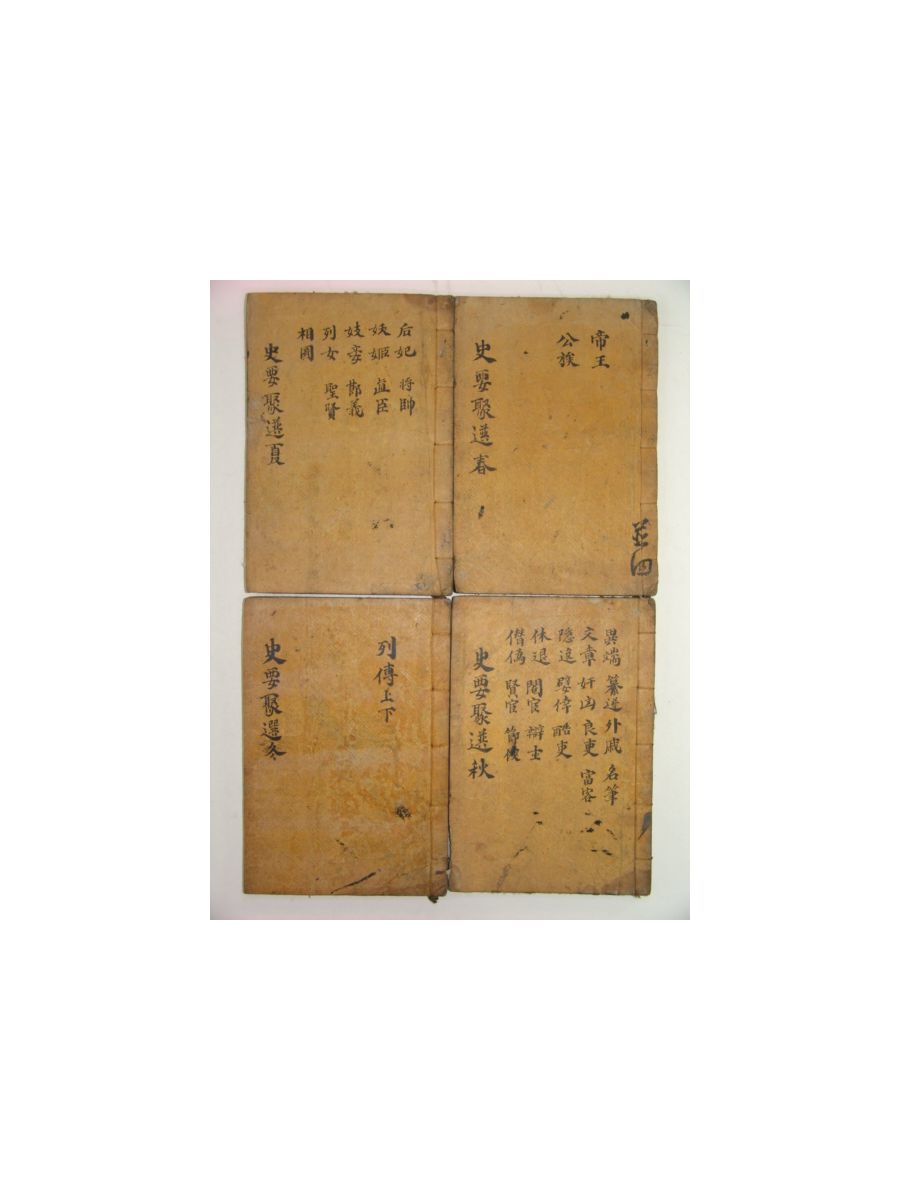 帝王
公族
史要聚選春
並四
后妃 將帥
妖姬 直臣
妓妾 節義
列女 聖賢
相國
史要聚選夏
異端 纂逆 外戚 名筆
文章 奸凶 良吏 富客
隱逸 嬖倖 酷吏
休退 閹宦 辯士
僭僞 賢宦 節俠
史要聚選秋
列傳上下
史要聚選冬